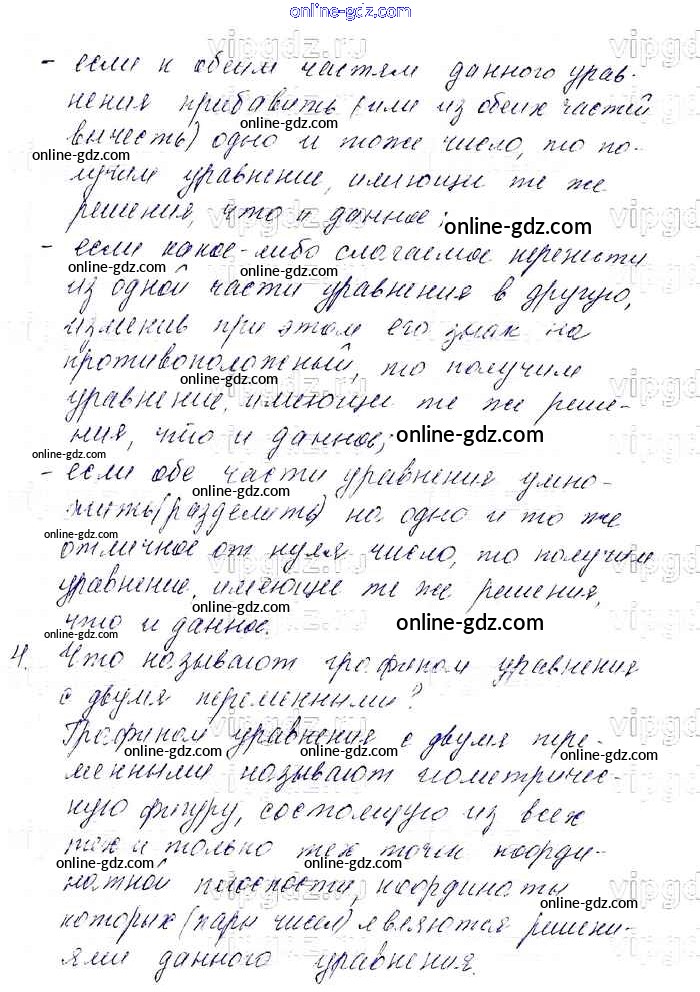 - если к обеим частям данного урав-
нения прибавить (или из обеих частей
вычесть) одно и тоже число, то по-
лучим уравнение, имеющи те же
решения, что и данное;
- если какое-либо слагаемое перенести
из одной части уравнения в другую,
изменив при этом его знак на
противоположный, то получим
уравнение, имеющи те же реше-
ния, что и данное;
- если обе части уравнения умно-
жить(разделить) на одно и то же
отличное от нуля число, то получим
уравнение, имеющее те же решения,
что и данное.
4. Что называют графиком уравнения
с двумя переменными?
Графиком уравнения с двумя пере-
менными называют геометричес-
кую фигуру, состоящую из всех
тех и только тех точек коорди-
натной плоскости, координаты
которых (пары чисел) являются решени-
ями данного уравнения.